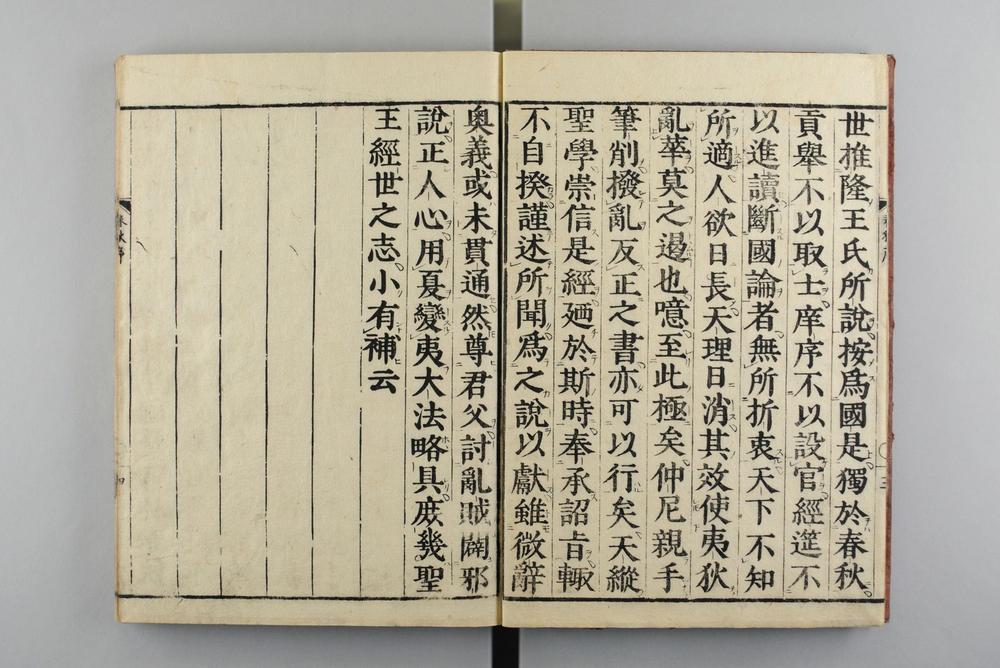 世推隆王氏所說按爲國是獨於春秋
貢舉不以取士庠序不以設官經筵不
以進讀斷國論者無所折衷天下不知
所適人欲日長天理日消其效使夷狄
亂華莫之遏也噫至此極矣仲尼親手
筆削撥亂反正之書亦可以行矣天縱
聖學崇信是經廼於斯時奉承詔旨輙
不自揆謹述所聞爲之說以獻雖微辭
奥義或未貫通然尊君父討亂賊闢邪
說正人心用夏變夷大法略具庶幾聖
王經世之志小有補云
春秋序
三
四